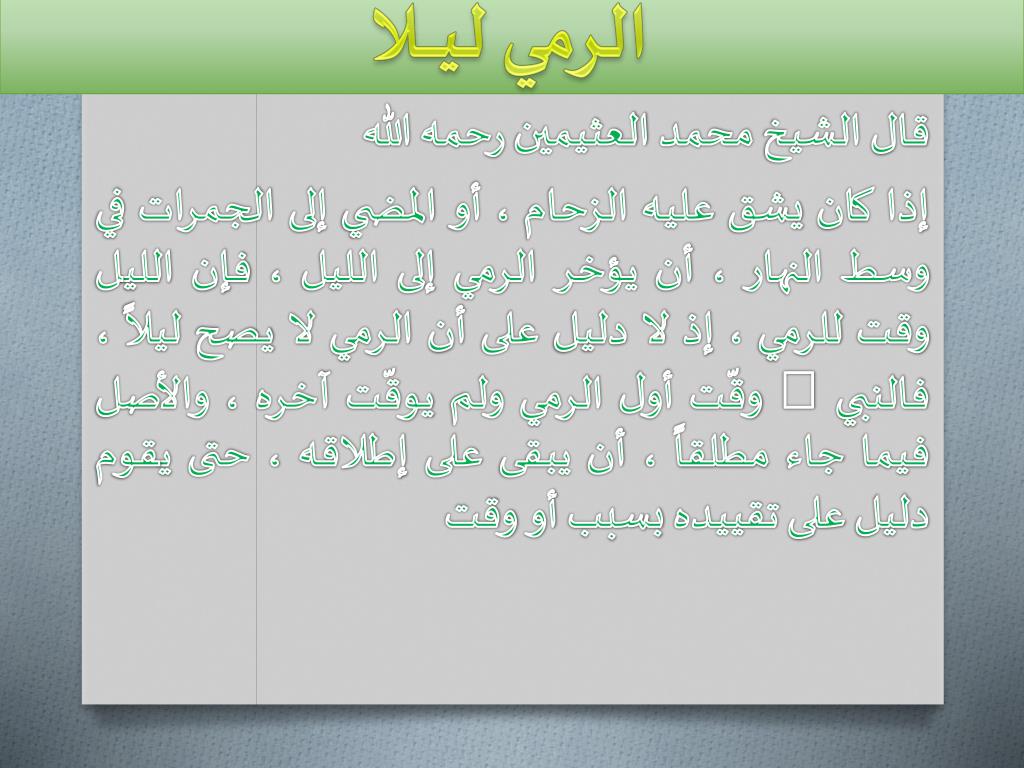 الرمي ليلا
قال الشيخ محمد العثيمين رحمه الله
إذا كان يشق عليه الزحام ، أو المضي إلى الجمرات في
وسط النهار ، أن يؤخر الرمي إلى الليل ، فإن الليل
وقت للرمي ، إذ لا دليل على أن الرمي لا يصح ليلاً ،
فالنبي □ وقّت أول الرمي ولم يوقّت آخره ، والأصل
فيما جاء مطلقاً ، أن يبقى على إطلاقه ، حتى يقوم
دليل على تقييده بسبب أو وقت